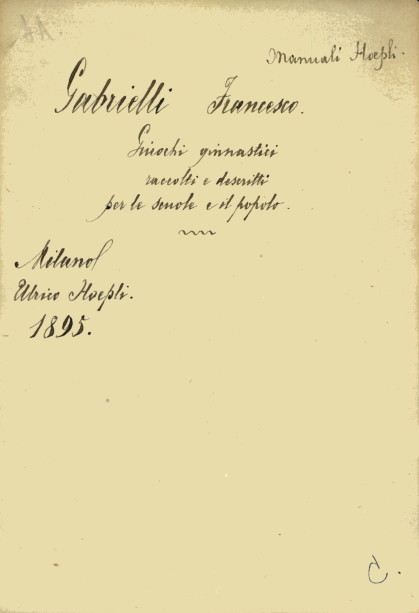 Manuali Hoepli.
Gabrielli Francesco.
Giuochi ginnastici
raccolti e descritti
per le scuole e il popolo.
Milano
Ulrico Hoepli.
1895.
C.